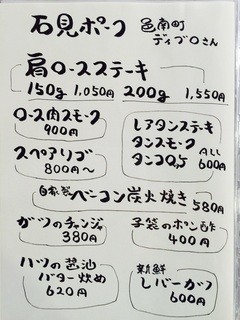 石見ポーク
邑南町
ディブロさん
肩ロースステーキ
150g 1,050円 200g 1,550円
ロース肉スモーク
900円
スペアリブ
800円〜
レアタンステーキ
タンスモーク
ALL
600円
自家製 ベーコン炭火焼き 580円
ガツのチャンジャ
380円
子袋のポン酢
400円
ハツの醤油
バター炒め
620円
新鮮
レバーカツ
600円